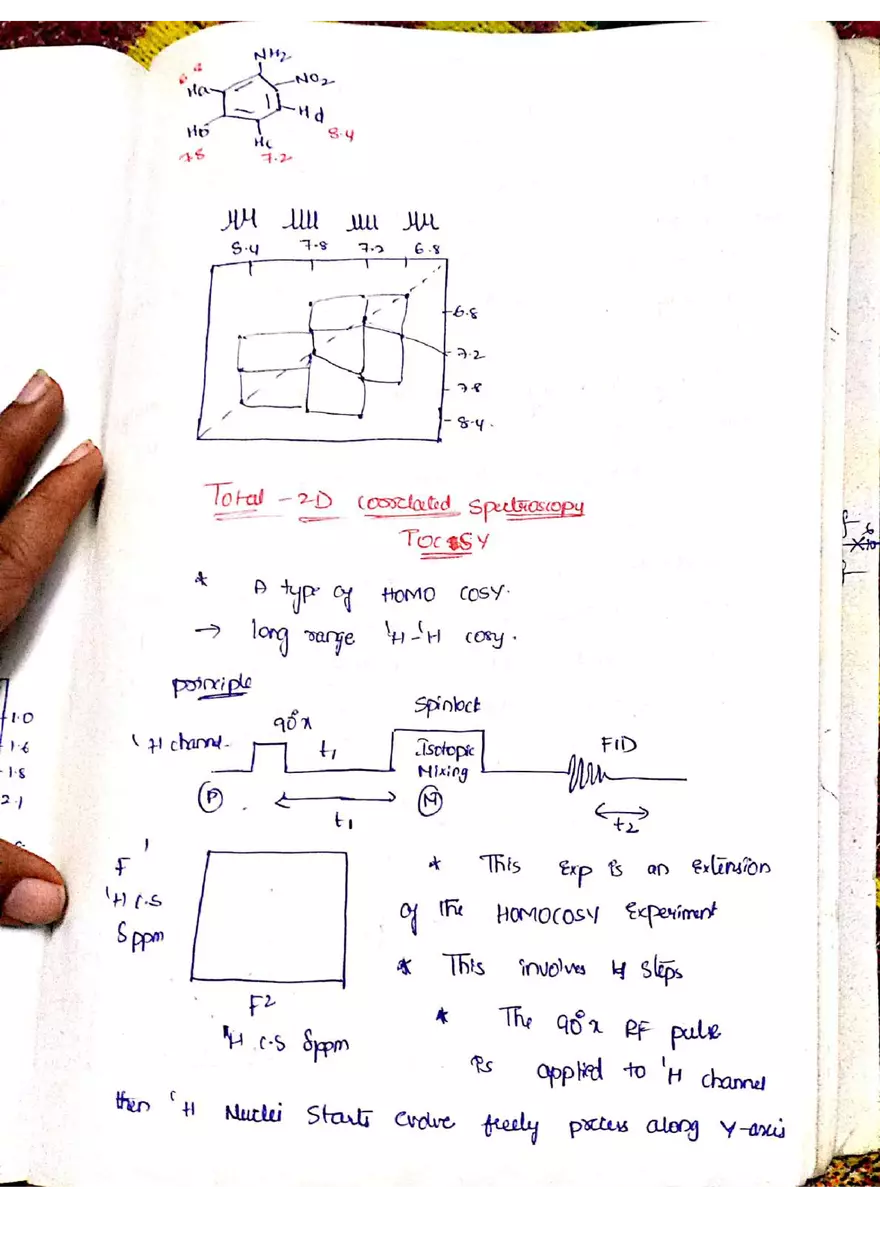 NH2
NO2
Ha
Hd
8.4
Hb
Hc
7.8
7.2
8.4 7.8 7.2 6.8
6.8
7.2
7.8
8.4
Total - 2D Correlated Spectroscopy
TOCSY
* A type of HOMO COSY.
→ long range 1H-1H cosy.
principle
Spinlock
90°x
1H channel
t1
Isotopic
Mixing
FID
P
M
t1
t2
F1
1H C.S
δ ppm
F2
1H C.S δppm
* This Exp is an extension
of the HOMOCOSY Experiment
* This involves 4 steps
* The 90°x RF pulse
is applied to 1H channel
then 1H Nuclei Starts evolve freely precess along Y-axis
1.0
1.6
1.8
2.1